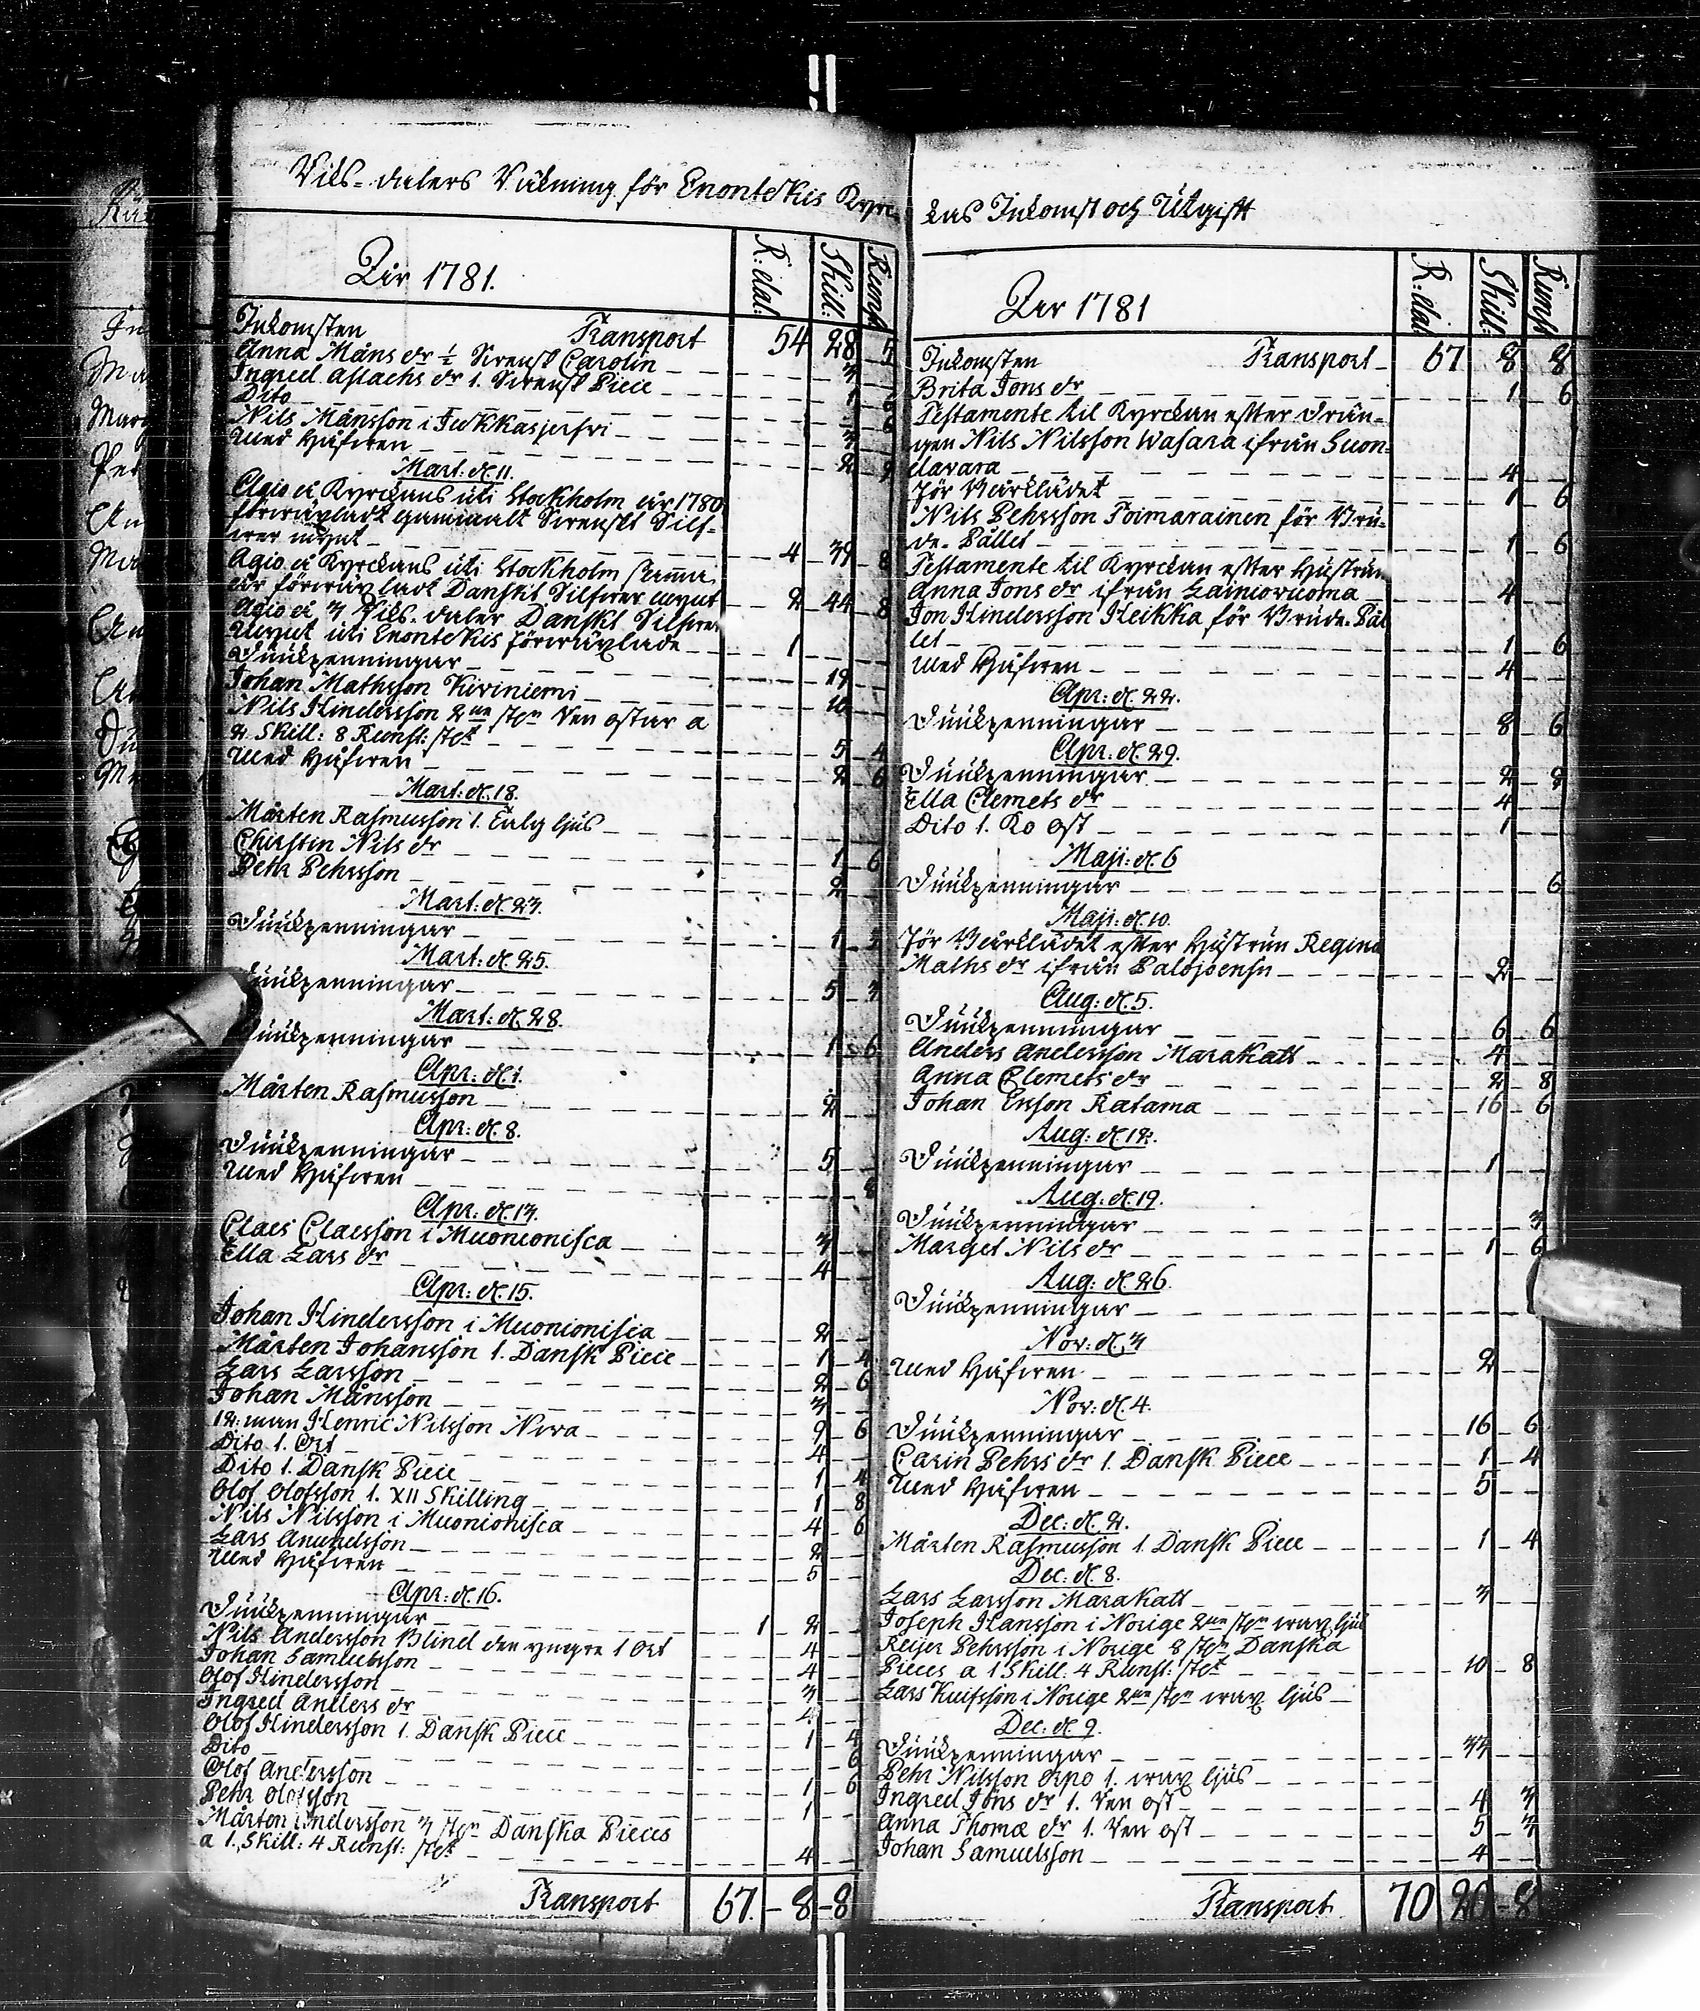 Riks-dalers Räkning för Enontekis Kyrc-
År 1781.
R: dal: Skill: Runst
Inkomsten Transport 54 28 5
Anna Måns dr ½ Svensk Carolin 3
Ingred Aslachs dr 1. Svensk Piece 1
Dito 6
Nils Månsson i Juckkasjerfvi 3
Med Håfwen 2
Mart: d. 11.
Agio å Kyrckans uti Stockholm år 1780
förwäxladt gammalt Svenskt Silf-
wer mynt 4 39 8
Agio å Kyrckans uti Stockholm samma
år förwäxladt Danskt Silfwer mynt 2 44 8
Agio å 3 Riks-daler Danskt Silfwer
Mynt uti Enontekis förwäxlade 1
Diukpenningar 19
Johan Mathsson Kiviniemi 10
Nils Hindersson 2ne st:n Ren ostar a
2 Skill: 8 Runst: st:t 5 4
Med Håfwen 2 6
Mart: d. 18.
Mårten Rasmusson 1. Talg ljus
Chirstin Nils dr 1 6
Pehr Pehrsson 2
Mart: d. 23.
Diukpenningar 1 3
Mart: d. 25.
Diukpenningar 5 3
Mart: d. 28.
Diukpenningar 1 6
Apr: d. 1.
Mårten Rasmusson 2
Apr: d. 8.
Diukpenningar 5
Med Håfwen 8
Apr: d. 13.
Claes Claesson i Muonionisca 3
Ella Lars dr 4
Apr: d. 15.
Johan Hindersson i Muonionisca 2
Mårten Johansson 1. Dansk Piece 1 4
Lars Larsson 2 6
Johan Månsson 3
12: man Henric Nilsson Niva 9 6
Dito 1. Ort 4
Dito 1. Dansk Piece 1 4
Olof Olofsson 1. XII Skilling 1 8
Nils Nilsson i Muonionisca 4 6
Lars Anundsson 2
Med Håfwen 5
Apr: d. 16.
Diukpenningar 1 2
Nils Andersson Blind den yngre 1 Ort 4
Johan Samuelsson 4
Olof Hindersson 3
Ingred Anders dr 4
Olof Hindersson 1. Dansk Piece 1 4
Dito 6
Olof Andersson 1 6
Pehr Olofsson 1
Mårten Hindersson 3 st:n Danska Pieces
a 1. Skill: 4 Runst: st:t 4
Transport 67. 8 8
kas Inkomst och Utgift
År 1781
R: dal: Skill: Runst
Inkomsten Transport 67 8 8
Brita Jons dr 1 6
Testamente til Kyrckan efter drän-
gen Nils Nilsson Wasara ifrån Suon-
davara 4
För Bårklädet 1 6
Nils Pehrsson Poimarainen för Brü-
de-Pället 1 6
Testamente til Kyrckan efter Hustrun
Anna Jons dr ifrån Lainiovuoma 4
Jon Hindersson Heikka för Brude-Päl
let 1 6
Med Håfwen 4
Apr: d. 22.
Diukpenningar 8 6
Apr: d. 29.
Diukpenningar 2 8
Ella Clemets dr 4
Dito 1. Ko ost 1
Maji: d. 6
Diukpenningar 6
Maji: d. 10.
För Bårklädet efter Hustrun Regina
Maths dr ifrån Palojoensu 2
Aug: d. 5.
Diukpenningar 6 6
Anders Andersson Marakatt 4
Anna Clemets dr 2 8
Johan Ersson Ratama 16 6
Aug: d. 12.
Diukpenningar 1
Aug: d. 19.
Diukpenningar 3
Marget Nils dr 1 6
Aug: d. 26.
Diukpenningar
Nov: d. 3
Med Håfwen 2
Nov: d. 4.
Diukpenningar 16 6
Carin Pehrs dr 1. Dansk Piece 1 4
Med Håfwen 5
Dec: d. 2.
Mårten Rasmusson 1. Dansk Piece 1 4
Dec: d. 8.
Lars Larsson Marakatt 3
Joseph Hansson i Norige 2ne st:n wax ljus
Reijer Pehrsson i Norige 8 st:n Danska
Pieces a 1 Skill: 4 Runst: st:t 10 8
Lars Knifsson i Norige 2ne st:n wax ljus
Dec: d. 9.
Diukpenningar 33
Pehr Nilsson Orpo 1. wax ljus
Ingred Jons dr 1. Ren ost 4 3
Anna Thomæ dr 1. Ren ost 5 3
Johan Samuelsson 4
Transport 70 20 8